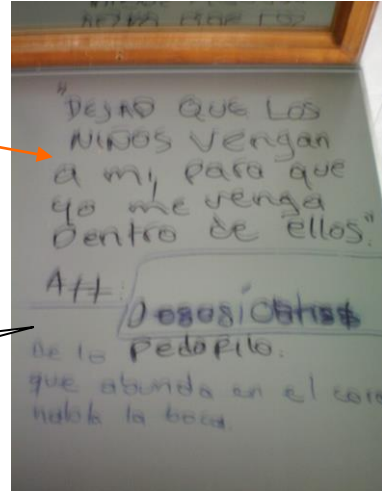 "DEJAD QUE LOS
NIÑOS Vengan
a mi, para que
yo me venga
Dentro de ellos."
Att:
De lo Pedofilo.
que abunda en el
la boca